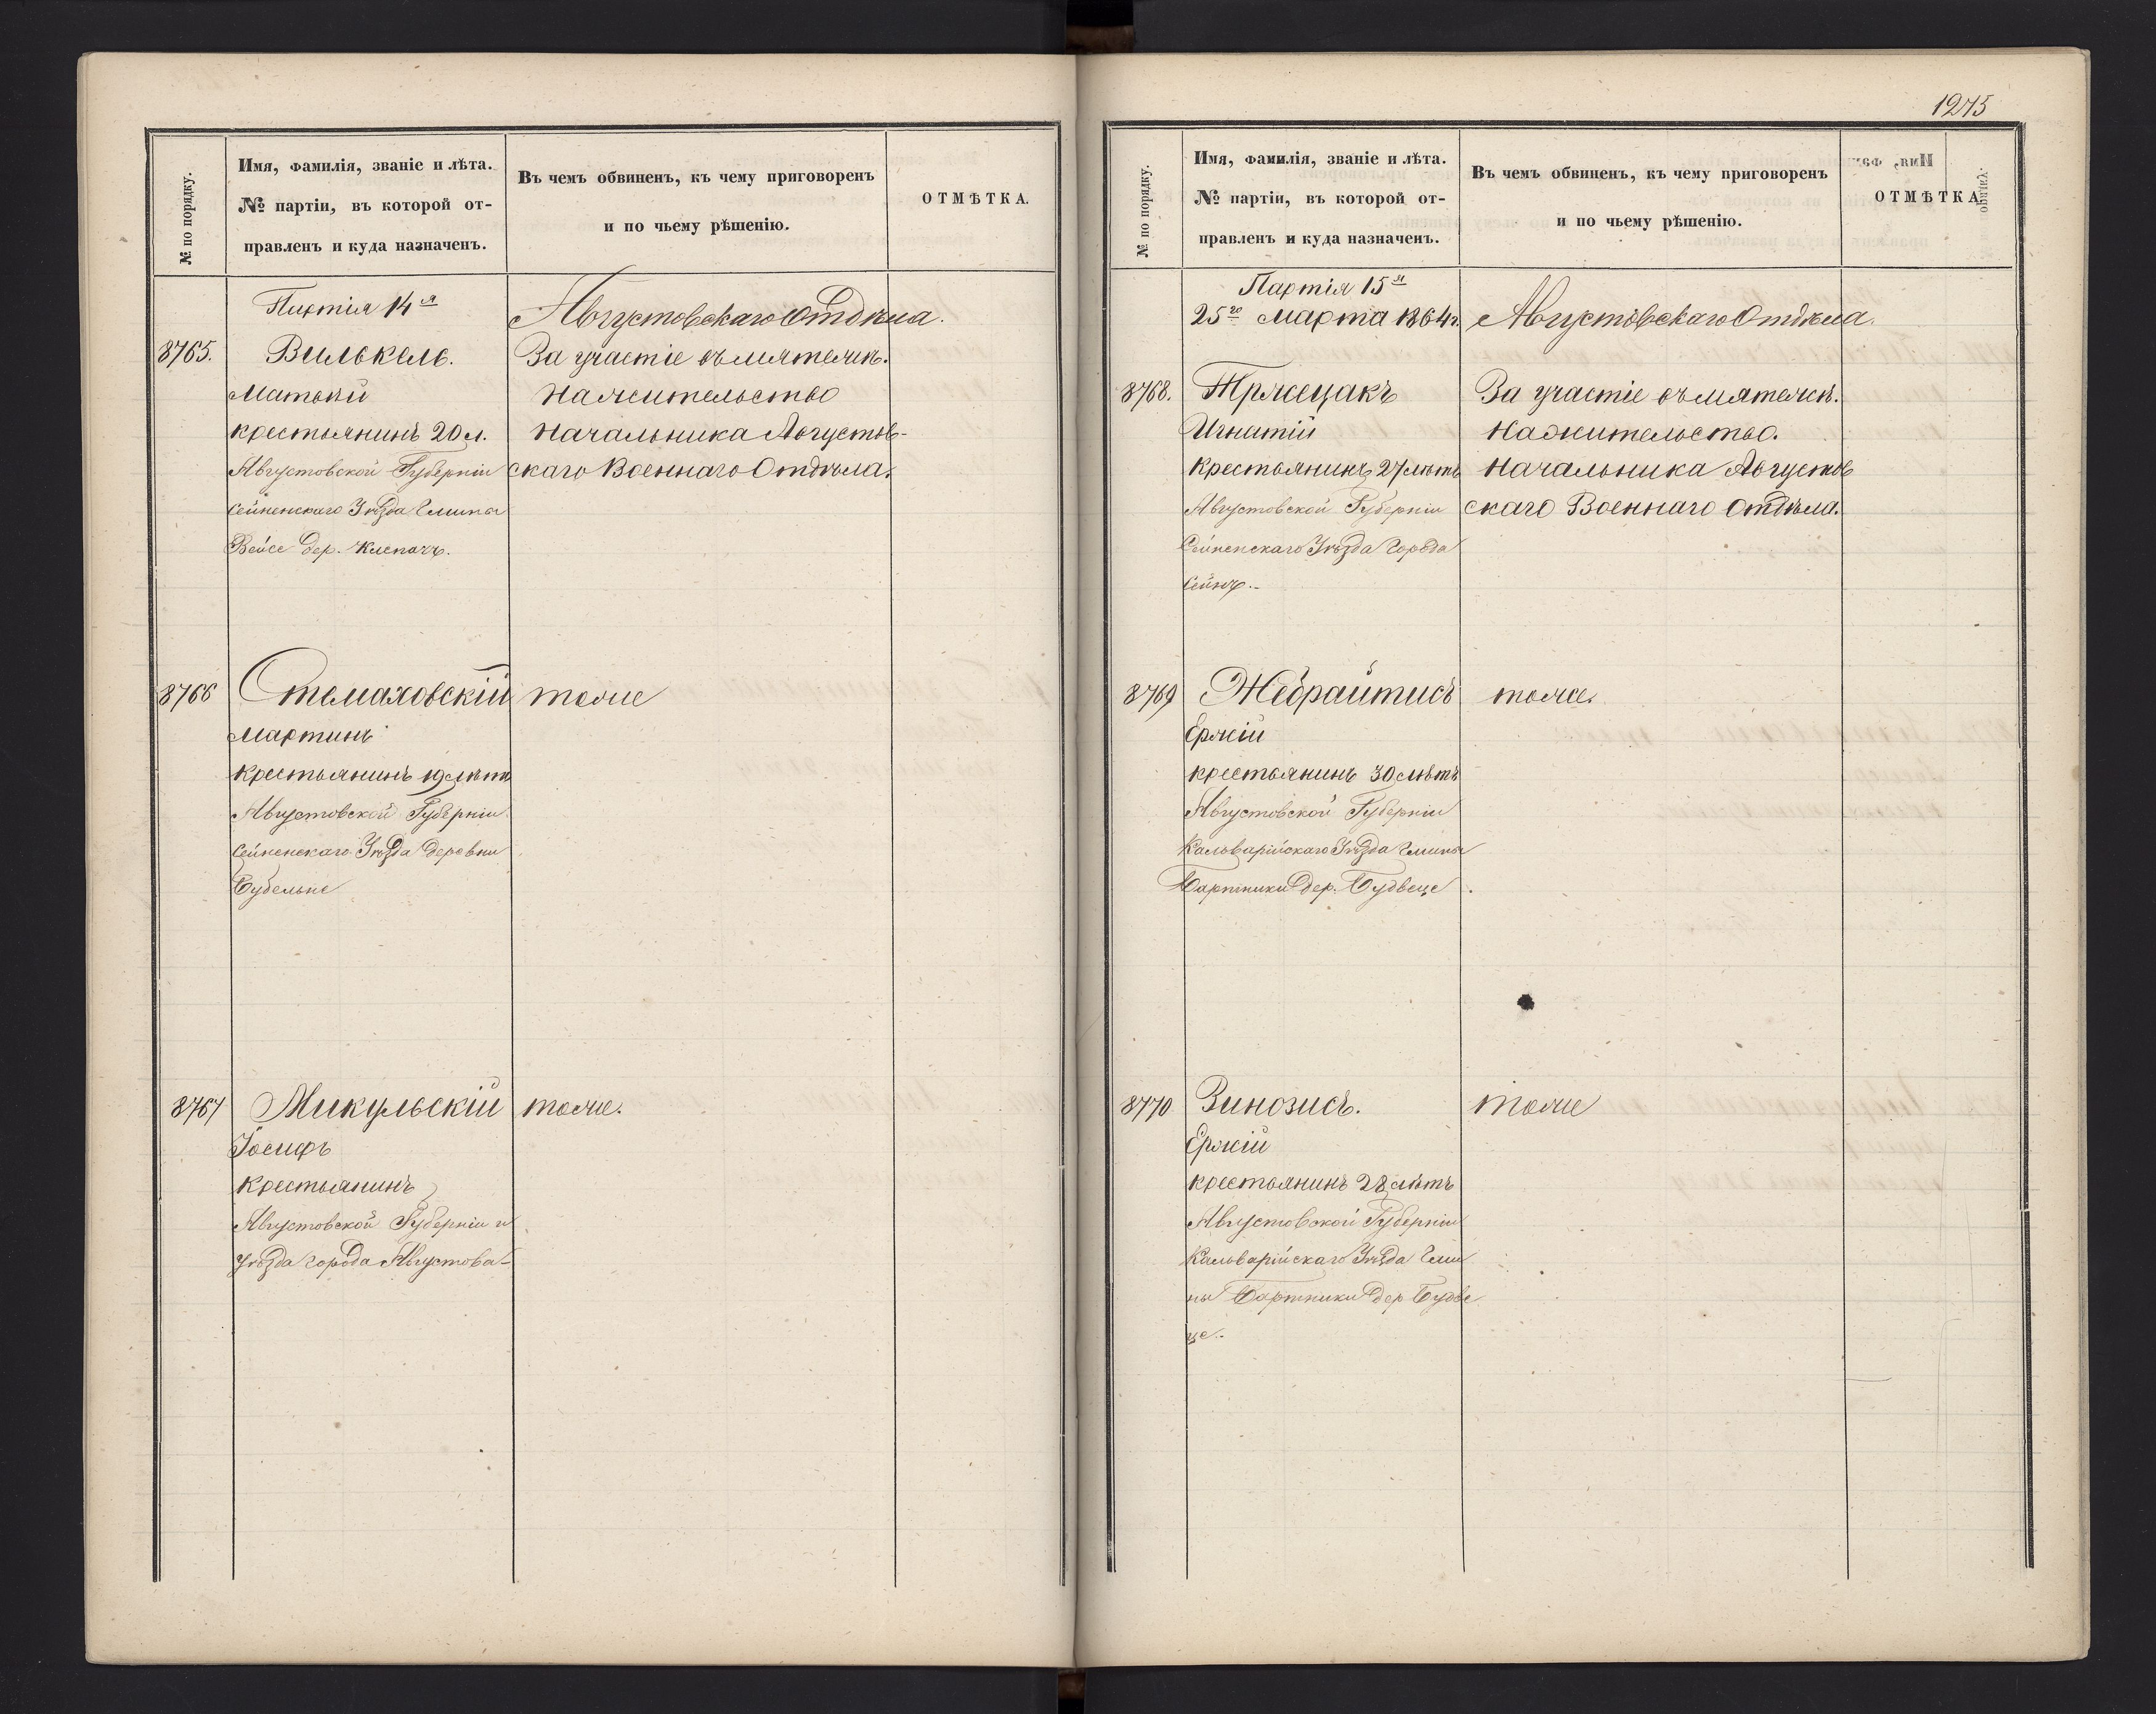 № по порядку.
Имя, фамилія, званіе и лѣта.
№ партіи, въ которой от-
правленъ и куда назначенъ.
Въ чемъ обвиненъ, къ чему приговоренъ
и по чьему рѣшенію.
ОТМѢТКА.
Партія 14я
Августовскаго Отдѣла.
8765.
Вилькель.
Матвѣй
крестьянинъ 20 л.
Августовской Губерніи
Сейненскаго Уѣзда Гмины
Вейсе дер.
За участіе въ мятежѣ.
На жительство
Начальника Августов-
скаго Военнаго Отдѣла.
8766
Стомаховскій
тоже
Мартинъ
крестьянинъ 19 лѣтъ
Августовской Губерніи
Сейненскаго Уѣзда деревни
Бубельне
8767
Микульскій
тоже.
Іосифъ
крестьянинъ
Августовской Губерніи и
уѣзда города Августова-
1275
№ по порядку.
Имя, фамилія, званіе и лѣта.
№ партіи, въ которой от-
правленъ и куда назначенъ.
Въ чемъ обвиненъ, къ чему приговоренъ
и по чьему рѣшенію.
ОТМѢТКА
Партія 15я
25го Марта 1864 г.
Августовскаго Отдѣла.
8768.
Тржецакъ
Игнатій
крестьянинъ 27 лѣтъ
Августовской Губерніи
Сейненскаго Уѣзда города
Сейнъ.-
За участіе въ мятежѣ.
На жительство.
Начальника Августов
скаго Военнаго Отдѣла.
8769
Жебрайтисъ
тоже.
Ержій
крестьянинъ 30 лѣтъ
Августовской Губерніи
Кальварійскаго Уѣзда Гмины
Бартники дер. Будвеце
8770
Зинозисъ.
тоже
Ержій
крестьянинъ 28 лѣтъ
Августовской Губерніи
Кальварійскаго Уѣзда Гми
ны Бартники дер Будве
це.-